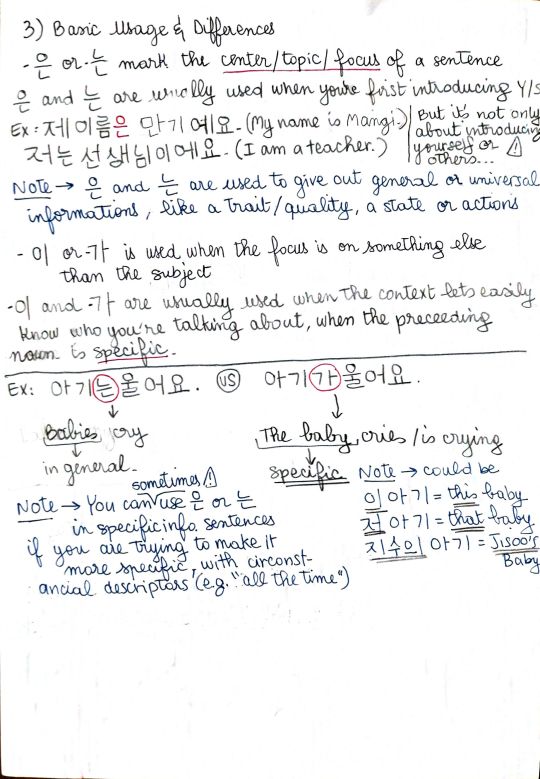 3) Basic Usage & Differences
- 은 or -는 mark the center/topic/focus of a sentence
은 and 는 are usually used when you're first introducing Y/S
Ex: 제 이름은 만기예요. (My name is Mangi.)
저는 선생님이에요. (I am a teacher.)
But it's not only
about introducing
yourself or
others...
Note → 은 and 는 are used to give out general or universal
informations, like a trait/quality, a state or actions
- 이 or -가 is used when the focus is on something else
than the subject
-이 and -가 are usually used when the context lets easily
know who you're talking about, when the preceeding
noun is specific.
Ex: 아기는 울어요. VS 아기가 울어요.
Babies cry
in general.
The baby cries/is crying
specific
Note → You can sometimes use 은 or 는
in specific info sentences
if you are trying to make it
more specific, with circonst-
ancial descriptors (e.g. "all the time")
Note → could be
이 아기 = this baby
저 아기 = that baby
지수의 아기 = Jisoo's
Baby